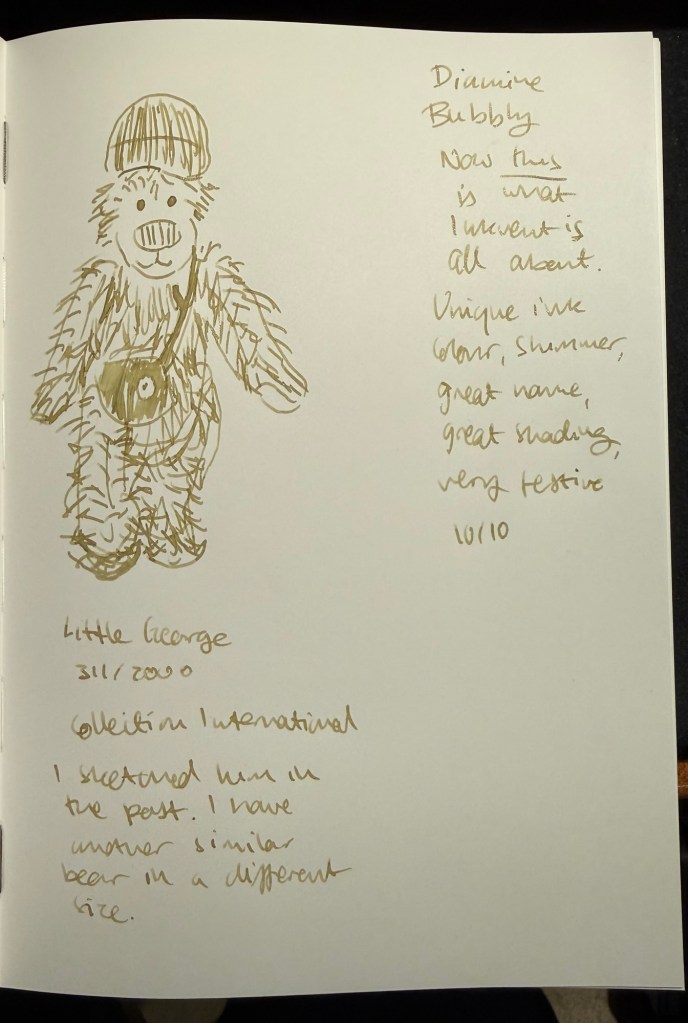 Diamine
Bubbly
Now this
is what
Inkvent is
all about.
Unique ink
colour, shimmer,
great name,
great shading,
very festive
10/10
Little George
311/2000
Collection International
I sketched him in
the past. I have
another similar
bear in a different
size.